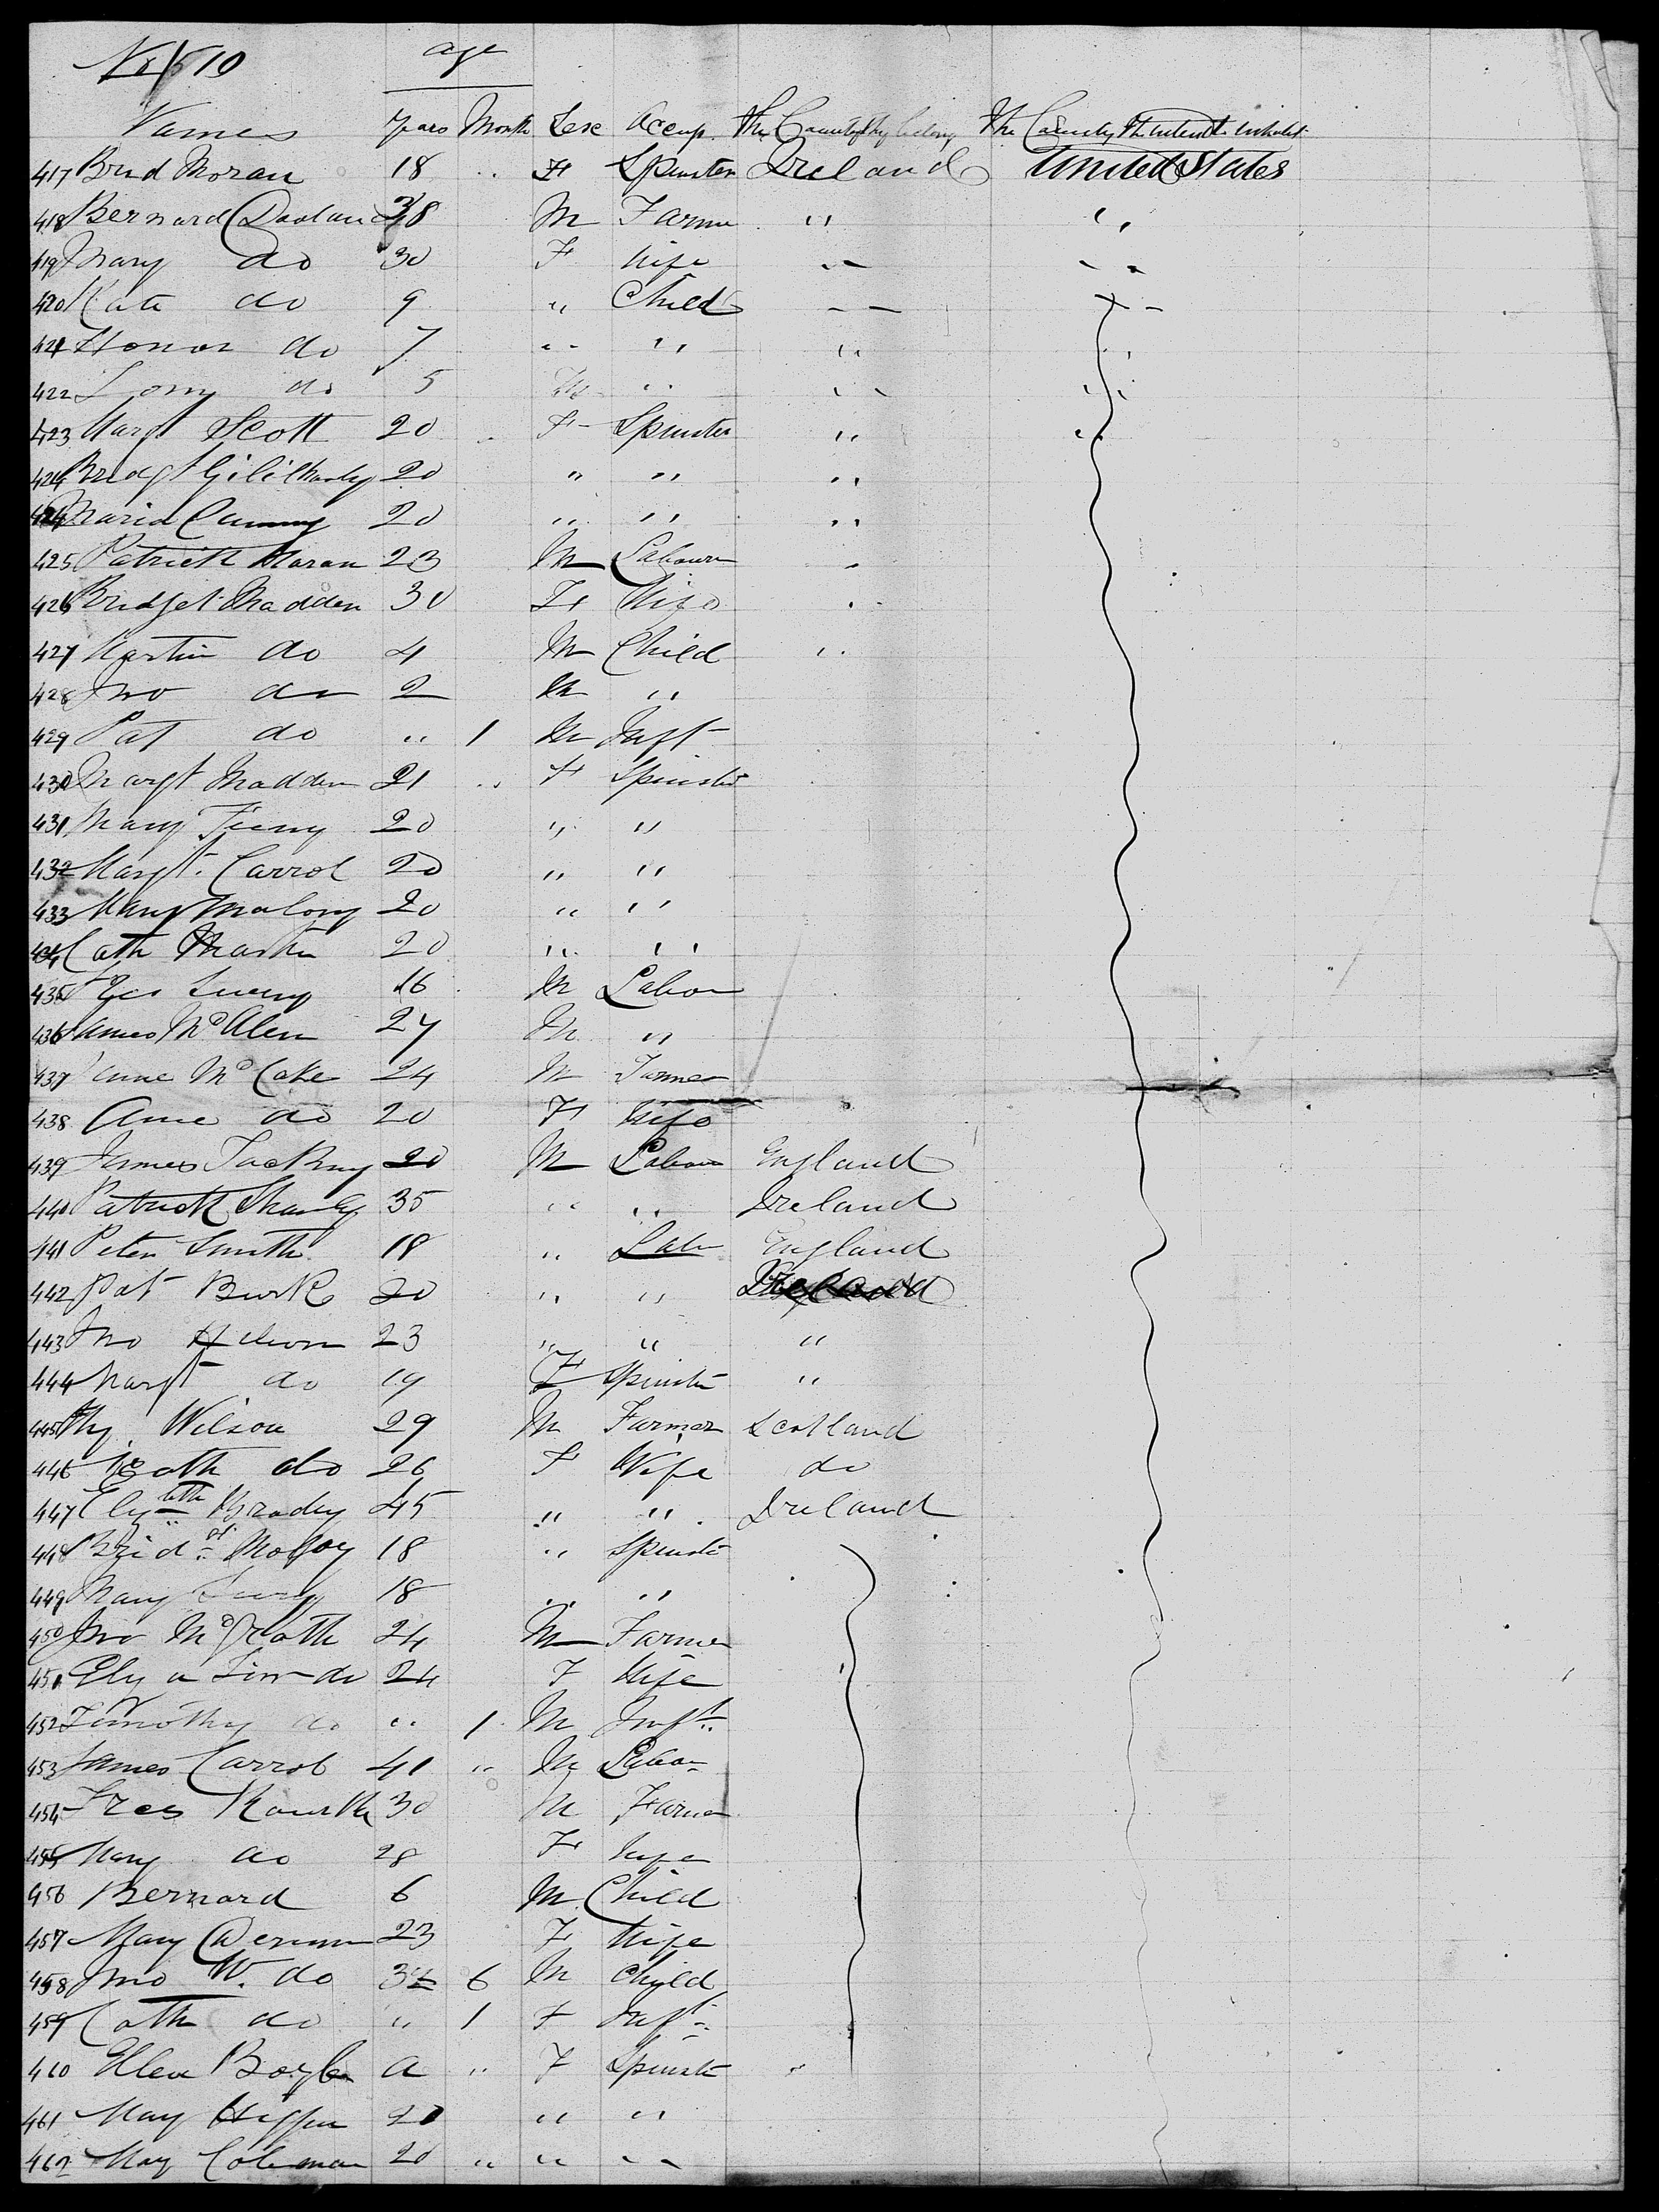 No 10
age
Names Years Month Sex Occup. The Country they belong The Country th intend to inhabit
417 Brid Moran 18 " F Spinster Ireland United States
418 Bernard Doolan 38 M Farmer " "
419 Mary do 30 F Wife " "
420 Kate do 9 " Child " "
421 Honor do 7 " " " "
422 do 5 " " "
423 Margt Scott 20 " F Spinster " "
424 Bridgt 20 " " "
424 Maria 20 " " "
425 Patrick Moran 23 M Labourer "
426 Bridget Madden 30 F Wife "
427 Martin do 4 M Child "
428 Jno do 2 M "
429 Pat do " 1 M Inft
430 Margt Madden 21 " F Spinster
431 Mary 20 " "
432 Margt. Carrol 20 " "
433 Mary Malony 20 " "
434 Cath Martin 20 " "
435 16 M Labor
436 James McAlen 27 M "
437 McCake 24 M Farmer
438 Anne do 20 F Wife
439 James 20 M Labour England
440 Patrick Shanly 35 " " Ireland
441 Peter Smith 18 " Labr England
442 Pat Burk 20 " " Ireland
443 Jno 23 " " "
444 Margt do 19 F Spinster "
445 Hy. Wilson 29 M Farmer Scotland
446 Cath do 26 F Wife do
447 Elyth Brady 45 " " Ireland
448 Bridgt Molloy 18 " Spinster
449 Mary 18 " "
450 Jno McGrath 24 M Farmer
451 Ely a do 24 F Wife
452 Timothy do " 1 M Inft
453 James Carrol 41 " M Labor
454 30 M Farmer
455 Mary do 28 F Wife
456 Bernard 6 M Child
457 Mary 23 F Wife
458 Jno W. do 6 M Child
459 Cath do " 1 F Inft
460 Ellen Boyle a " F Spinster "
461 May 20 " "
462 May Coleman 20 " " "